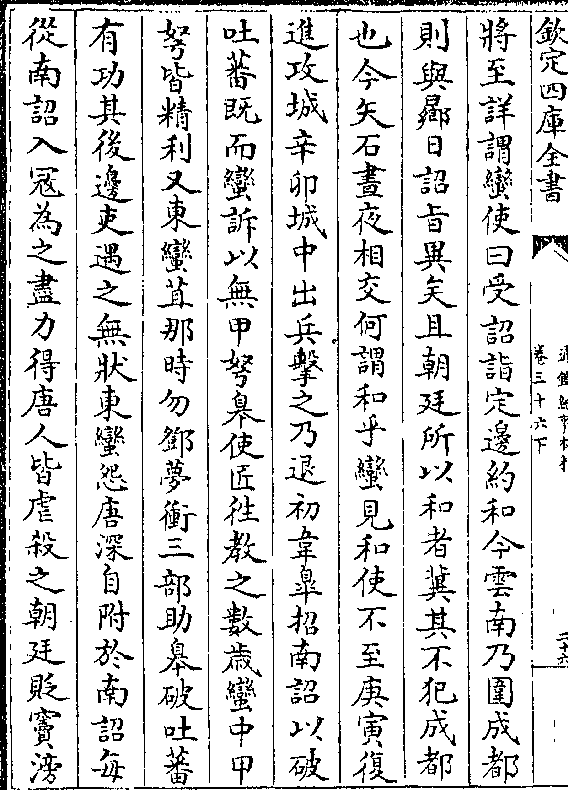 欽定四庫全書
卷三十六下
將至詳謂蠻使曰受詔詣定邊約和今雲南乃圍成都
則與曏日詔旨異矣且朝廷所以和者冀其不犯成都
也今矢石晝夜相交何謂和乎蠻見和使不至庚寅復
進攻城辛卯城中出兵擊之乃退初韋臯招南詔以破
吐蕃既而蠻訴以無甲弩臯使匠徃教之數歲蠻中甲
弩皆精利又東蠻苴那時勿鄧夢衝三部助臯破吐蕃
有功其後邊吏遇之無狀東蠻怨唐深自附於南詔每
從南詔入冦為之盡力得唐人皆虐殺之朝廷貶竇滂